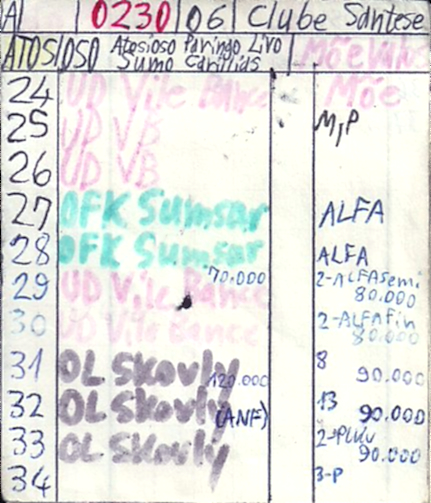 A 0230 06 Clube Santese
ATOS/OSO Atesioso Paringo Livo Mõevalos
Sumo Canílias
24 UD Vile Bance Mõe
25 UD VB M,P
26 UD VB
27 OFK Sumsar ALFA
28 OFK Sumsar ALFA
70.000 2-ALFAsemi
29 UD Vile Bance 80.000
30 UD Vile Bance 2-ALFAfin
80.000
31 OL Skovly 120.000 8 90.000
32 OL Skovly (ANF) 13 90.000
33 OL Skovly 90.000
34 3-P